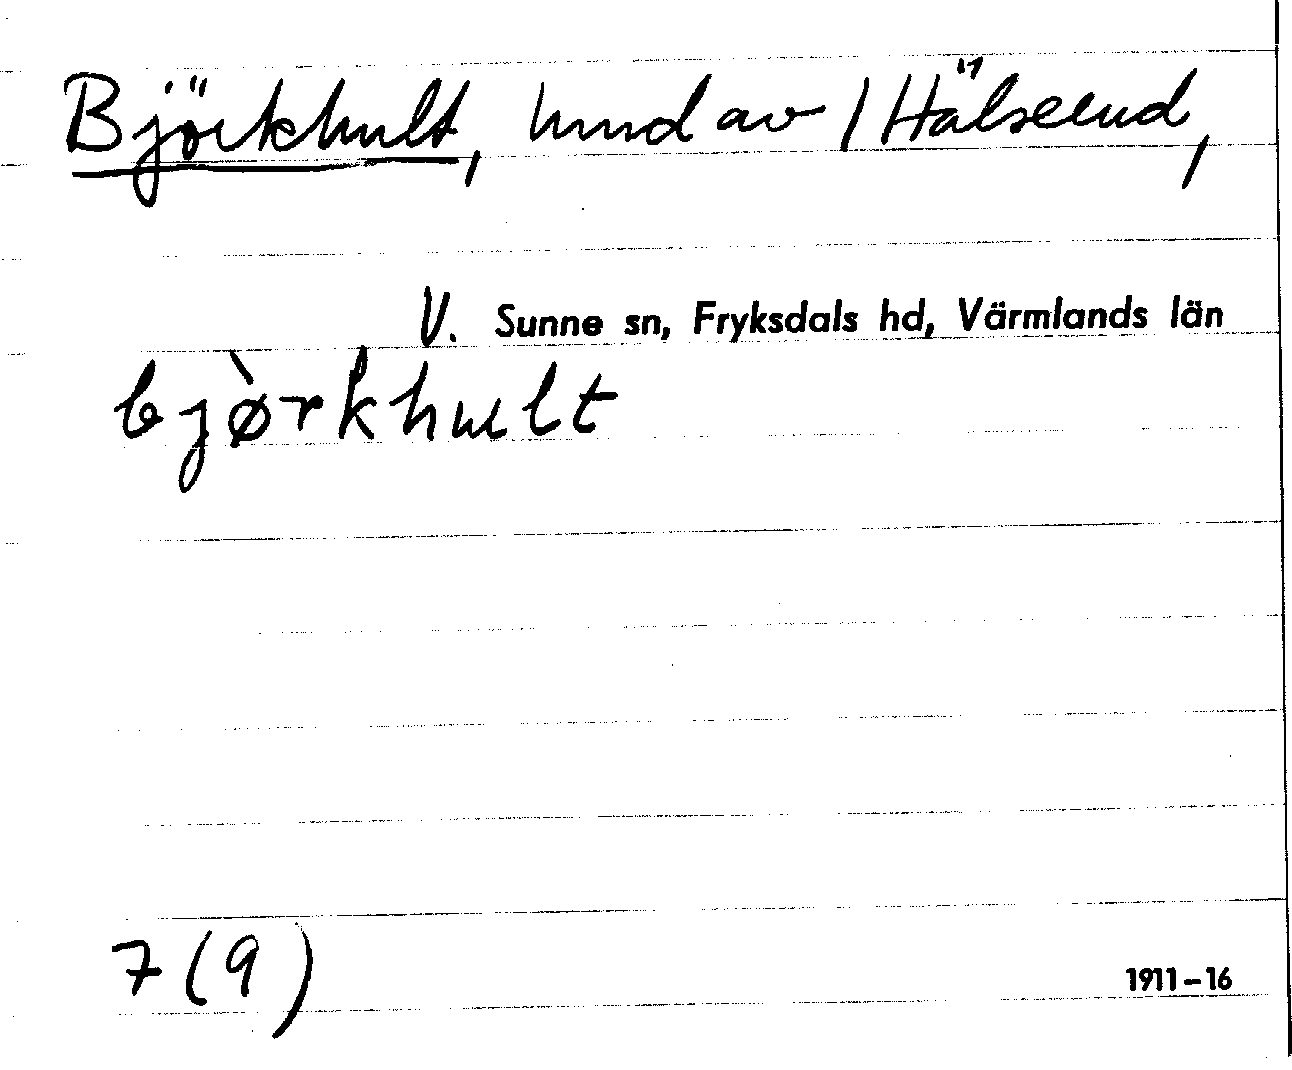 Björkhult, hmd av 1 Hälserud,
V. Sunne sn, Fryksdals hd, Värmlands län
bjø̀rkhult
7 (9)
1911–16